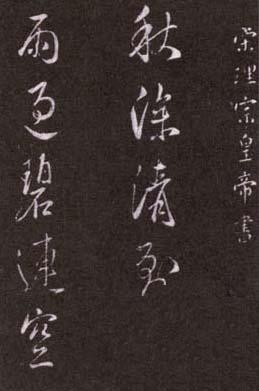 宋理宗皇帝書
秋深清到
雨過碧連空